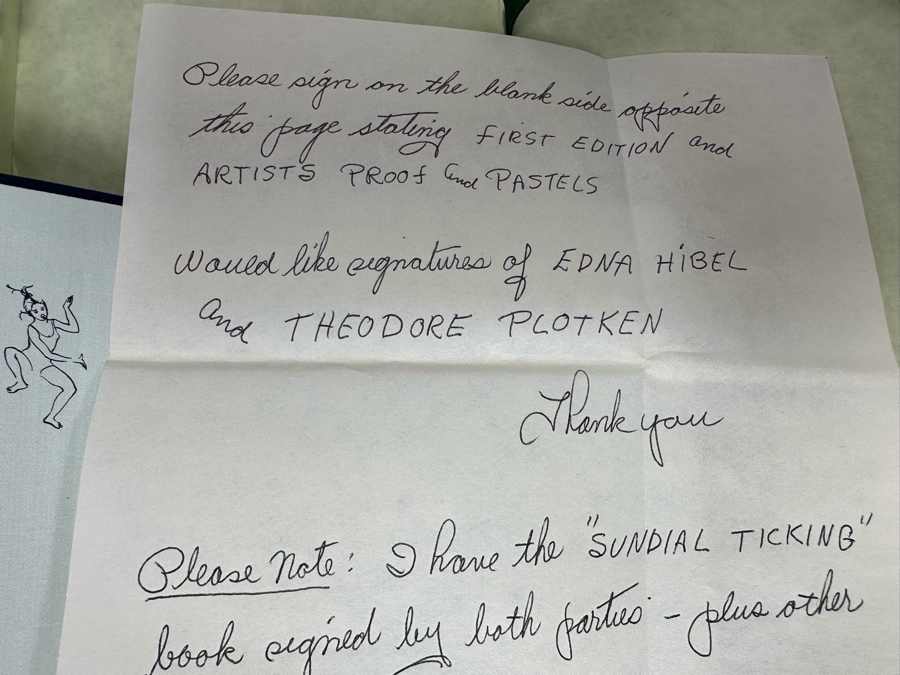 Please sign on the blank side opposite
this page stating FIRST EDITION and
ARTISTS PROOF and PASTELS
Would like signatures of EDNA HIBEL
and THEODORE PLOTKEN
Thank you
Please Note: I have the "SUNDIAL TICKING"
book signed by both parties - plus other